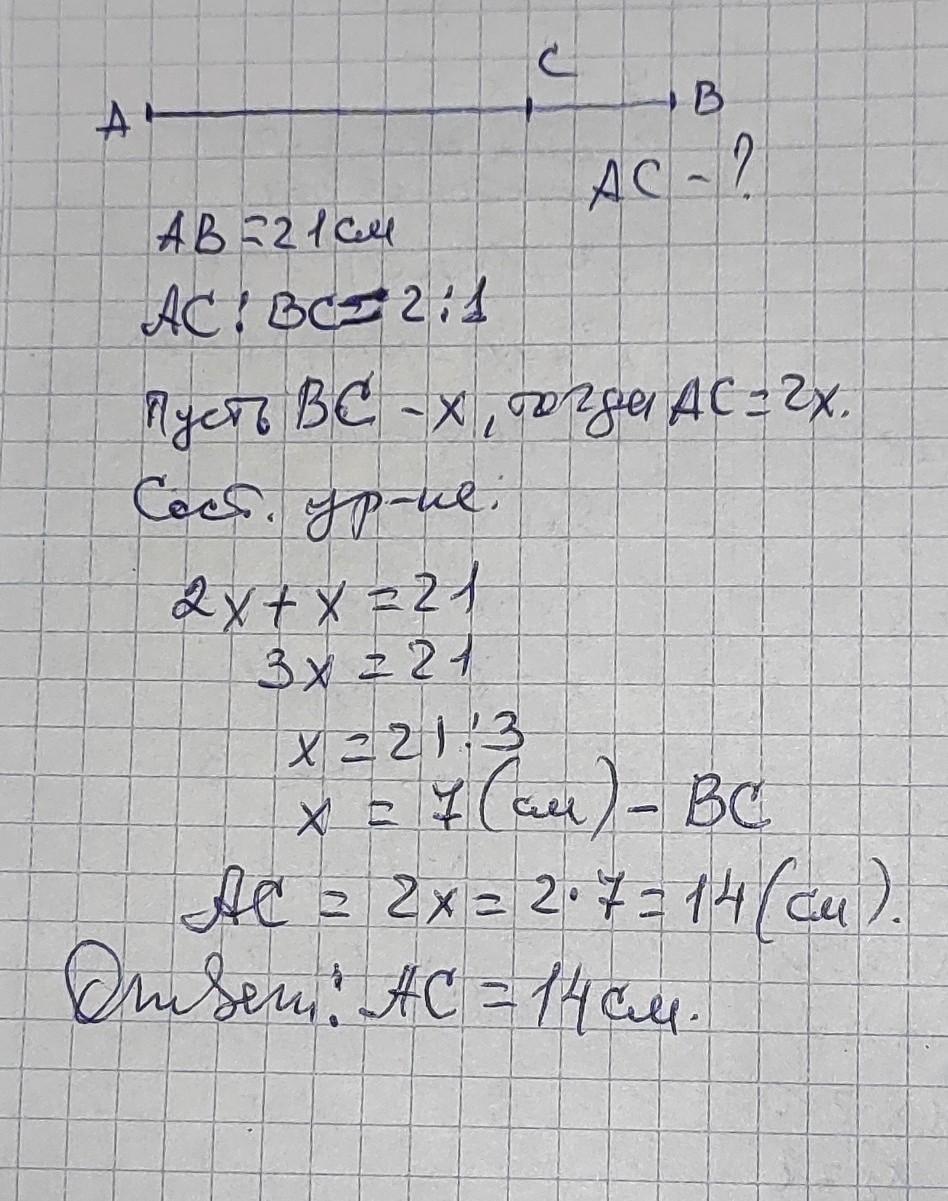 A C B
AC - ?
AB = 21 см
AC : BC = 2 : 1
Пусть BC - x, тогда AC = 2x.
Сост. ур-ие.
2x + x = 21
3x = 21
x = 21 : 3
x = 7 (см) - BC
AC = 2x = 2 · 7 = 14 (см).
Ответ: AC = 14 см.